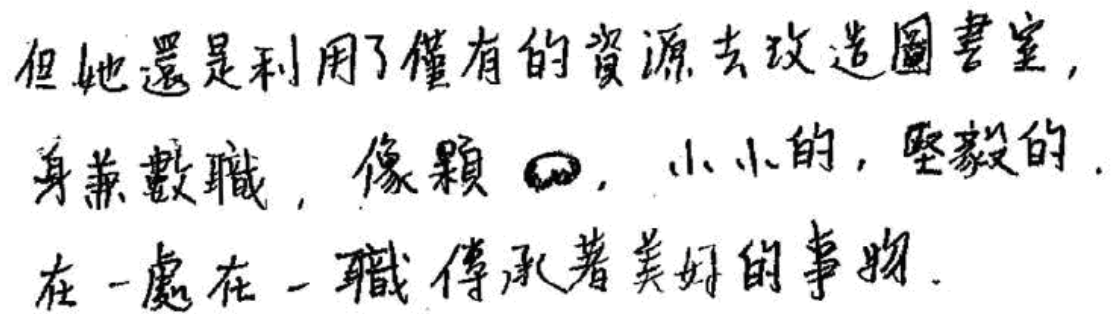 但她還是利用了僅有的資源去改造圖書室,
身兼數職,像顆,小小的,堅毅的.
在一處在一職傳承著美好的事物.